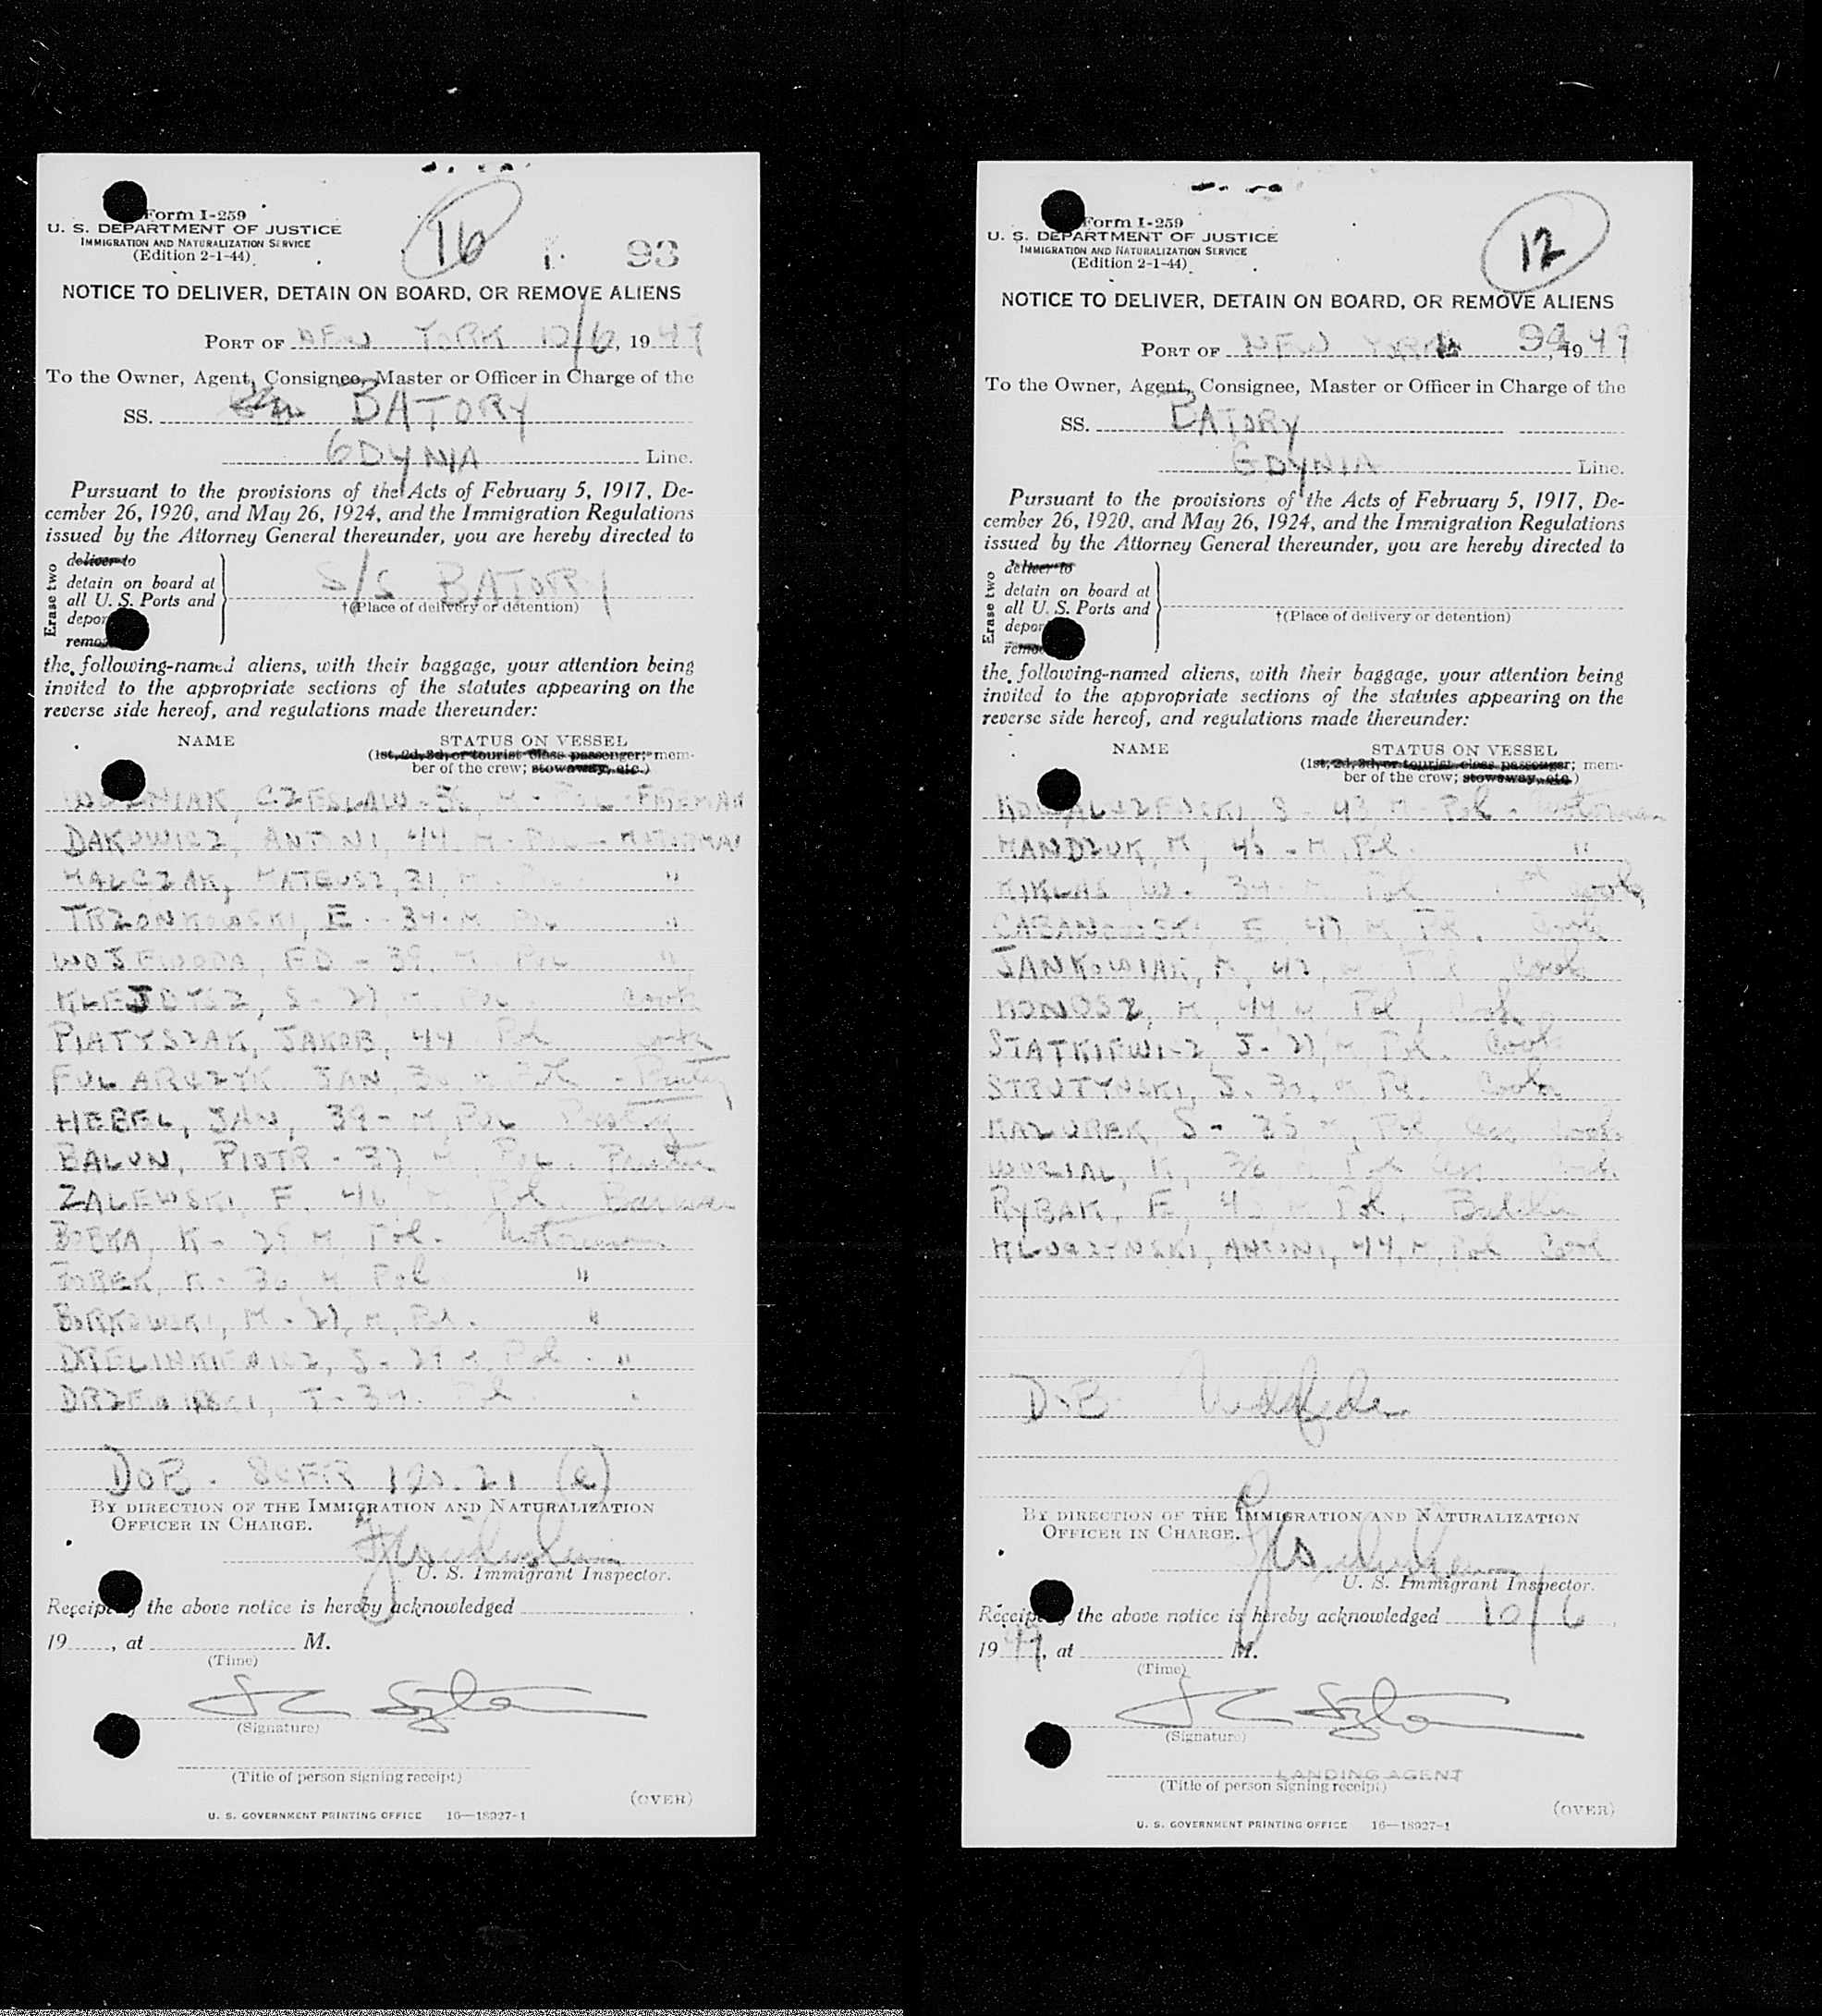 Form I-259
U. S. DEPARTMENT OF JUSTICE
IMMIGRATION AND NATURALIZATION SERVICE
(Edition 2-1-44)
16
93
NOTICE TO DELIVER, DETAIN ON BOARD, OR REMOVE ALIENS
PORT OF NEW YORK 10/6, 1949
To the Owner, Agent, Consignee, Master or Officer in Charge of the
SS. BATORY
GDYNIA Line.
Pursuant to the provisions of the Acts of February 5, 1917, De-
cember 26, 1920, and May 26, 1924, and the Immigration Regulations
issued by the Attorney General thereunder, you are hereby directed to
Erase two
deliver to
detain on board at
all U. S. Ports and
depor
remo
S/S BATORY
†(Place of delivery or detention)
the following-named aliens, with their baggage, your attention being
invited to the appropriate sections of the statutes appearing on the
reverse side hereof, and regulations made thereunder:
NAME STATUS ON VESSEL
(1st, 2d, 3d, or tourist class passenger; mem-
ber of the crew; stowaway, etc.)
WOZNIAK, CZESLAW - M - POL FIREMAN
DAKOWICZ, ANTONI, 44. M - POL - MOTORMAN
MALCZAK, MATEUSZ, 31, M - "
TRZONKOWSKI, E. - 34 - M POL "
ED - 39, M POL "
S - 27 M POL. Cook
PIATYSZAK, JAKOB, 44 Pol Cook
FULARCZYK JAN, 30 M Pol - Pantry
HEBEL, JAN, 39 - M POL Pantry
BALUN, PIOTR - 37 M, POL. Pantry
ZALEWSKI, F. 46 M Pol. Barman
K - 29 M Pol. Motorman
K - 30 M Pol "
BORKOWSKI, M - 27, M, Pol. "
DRELINKIEWICZ, S - 29 M Pol. "
T - 34. Pol
DOB - 8CFR 120.21 (e)
BY DIRECTION OF THE IMMIGRATION AND NATURALIZATION
OFFICER IN CHARGE.
U. S. Immigrant Inspector.
Receipt the above notice is hereby acknowledged
19 , at M.
(Time)
(Signature)
(Title of person signing receipt)
(OVER)
U. S. GOVERNMENT PRINTING OFFICE 16—18927-1
Form I-259
U. S. DEPARTMENT OF JUSTICE
IMMIGRATION AND NATURALIZATION SERVICE
(Edition 2-1-44)
12
NOTICE TO DELIVER, DETAIN ON BOARD, OR REMOVE ALIENS
PORT OF NEW YORK 94, 1949
To the Owner, Agent, Consignee, Master or Officer in Charge of the
SS. BATORY
GDYNIA Line.
Pursuant to the provisions of the Acts of February 5, 1917, De-
cember 26, 1920, and May 26, 1924, and the Immigration Regulations
issued by the Attorney General thereunder, you are hereby directed to
Erase two
deliver to
detain on board at
all U. S. Ports and
depor
remo
†(Place of delivery or detention)
the following-named aliens, with their baggage, your attention being
invited to the appropriate sections of the statutes appearing on the
reverse side hereof, and regulations made thereunder:
NAME STATUS ON VESSEL
(1st, 2d, 3d, or tourist class passenger; mem-
ber of the crew; stowaway, etc.)
KOWALCZEWSKI S - 43 M - Pol - Motorman
MANDZUK, M, 46 - M, Pol. "
MIKLAS, W - 34 - M Pol Cook
CABANOWSKI E 47 M Pol. Cook
JANKOWIAK, M, 42, M Pol Cook
KONOSZ, M, 44 M Pol, Cook
STATKIEWICZ J - 27, M Pol. Cook
STRUTYNSKI, J. 30, M Pol. Cook
MAZUREK S - 35 M, Pol, Cook
K, 36 Pol Cook
RYBAK, E, M Pol, Butcher
ANTONI, 44, M, Pol Cook
DOB
BY DIRECTION OF THE IMMIGRATION AND NATURALIZATION
OFFICER IN CHARGE.
U. S. Immigrant Inspector.
Receipt the above notice is hereby acknowledged 10/6
1949, at M.
(Time)
(Signature)
LANDING AGENT
(Title of person signing receipt)
(OVER)
U. S. GOVERNMENT PRINTING OFFICE 16—18927-1